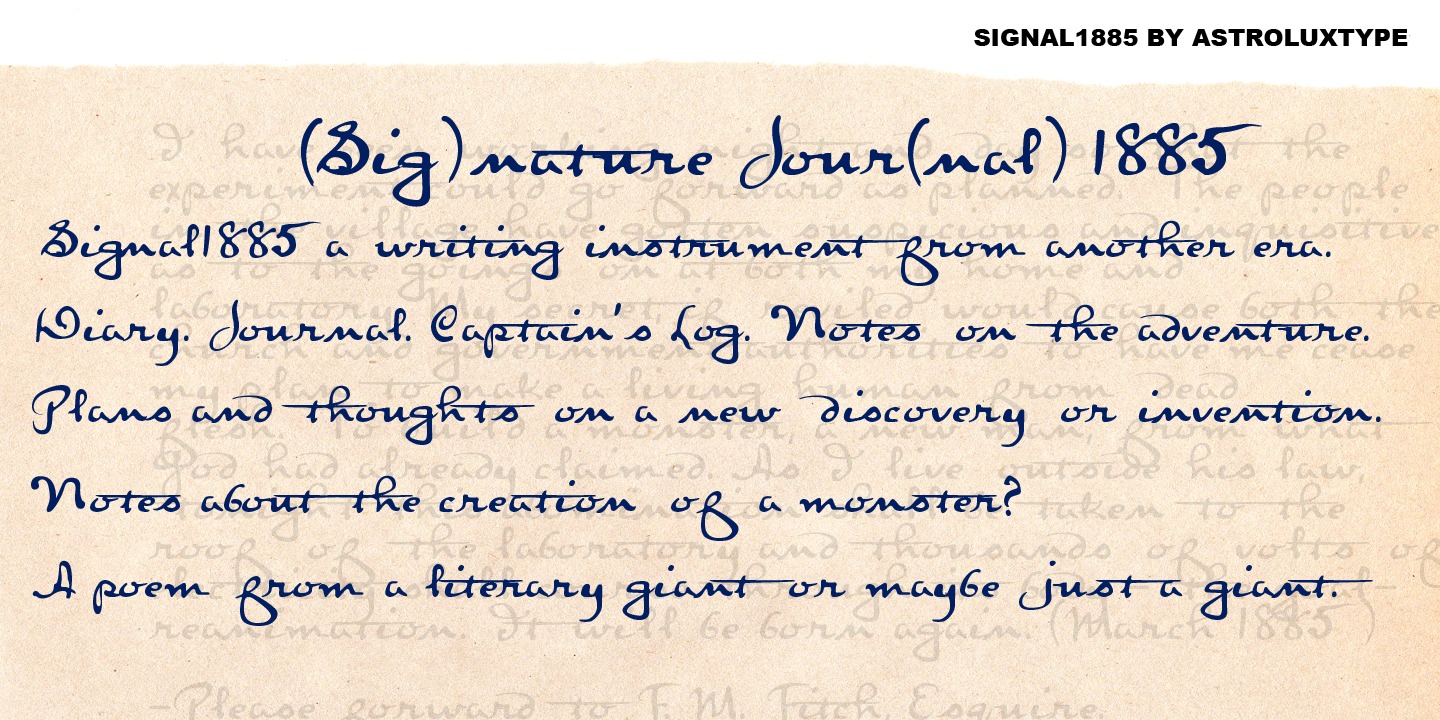 SIGNAL1885 BY ASTROLUXTYPE
(Sig)nature Jour(nal) 1885
Signal1885 a writing instrument from another era.
Diary. Journal. Captain's Log. Notes on the adventure.
Plans and thoughts on a new discovery or invention.
Notes about the creation of a monster?
A poem from a literary giant or maybe just a giant.
I have the
experiment would go forward as planned. The people
in the village have
as to the goings on at both my home and
laboratory. My secret, if reviled would cause both the
church and government authorities to have me cease
my plan to make a living human from dead
flesh. To build a monster, a new man, from what
God had already claimed. As I live outside his law
taken to the
roof of the laboratory and thousands of volts of
reanimation. It will be born again. (March 1885)
-Please forward to F. M. Fitch, Esquire.